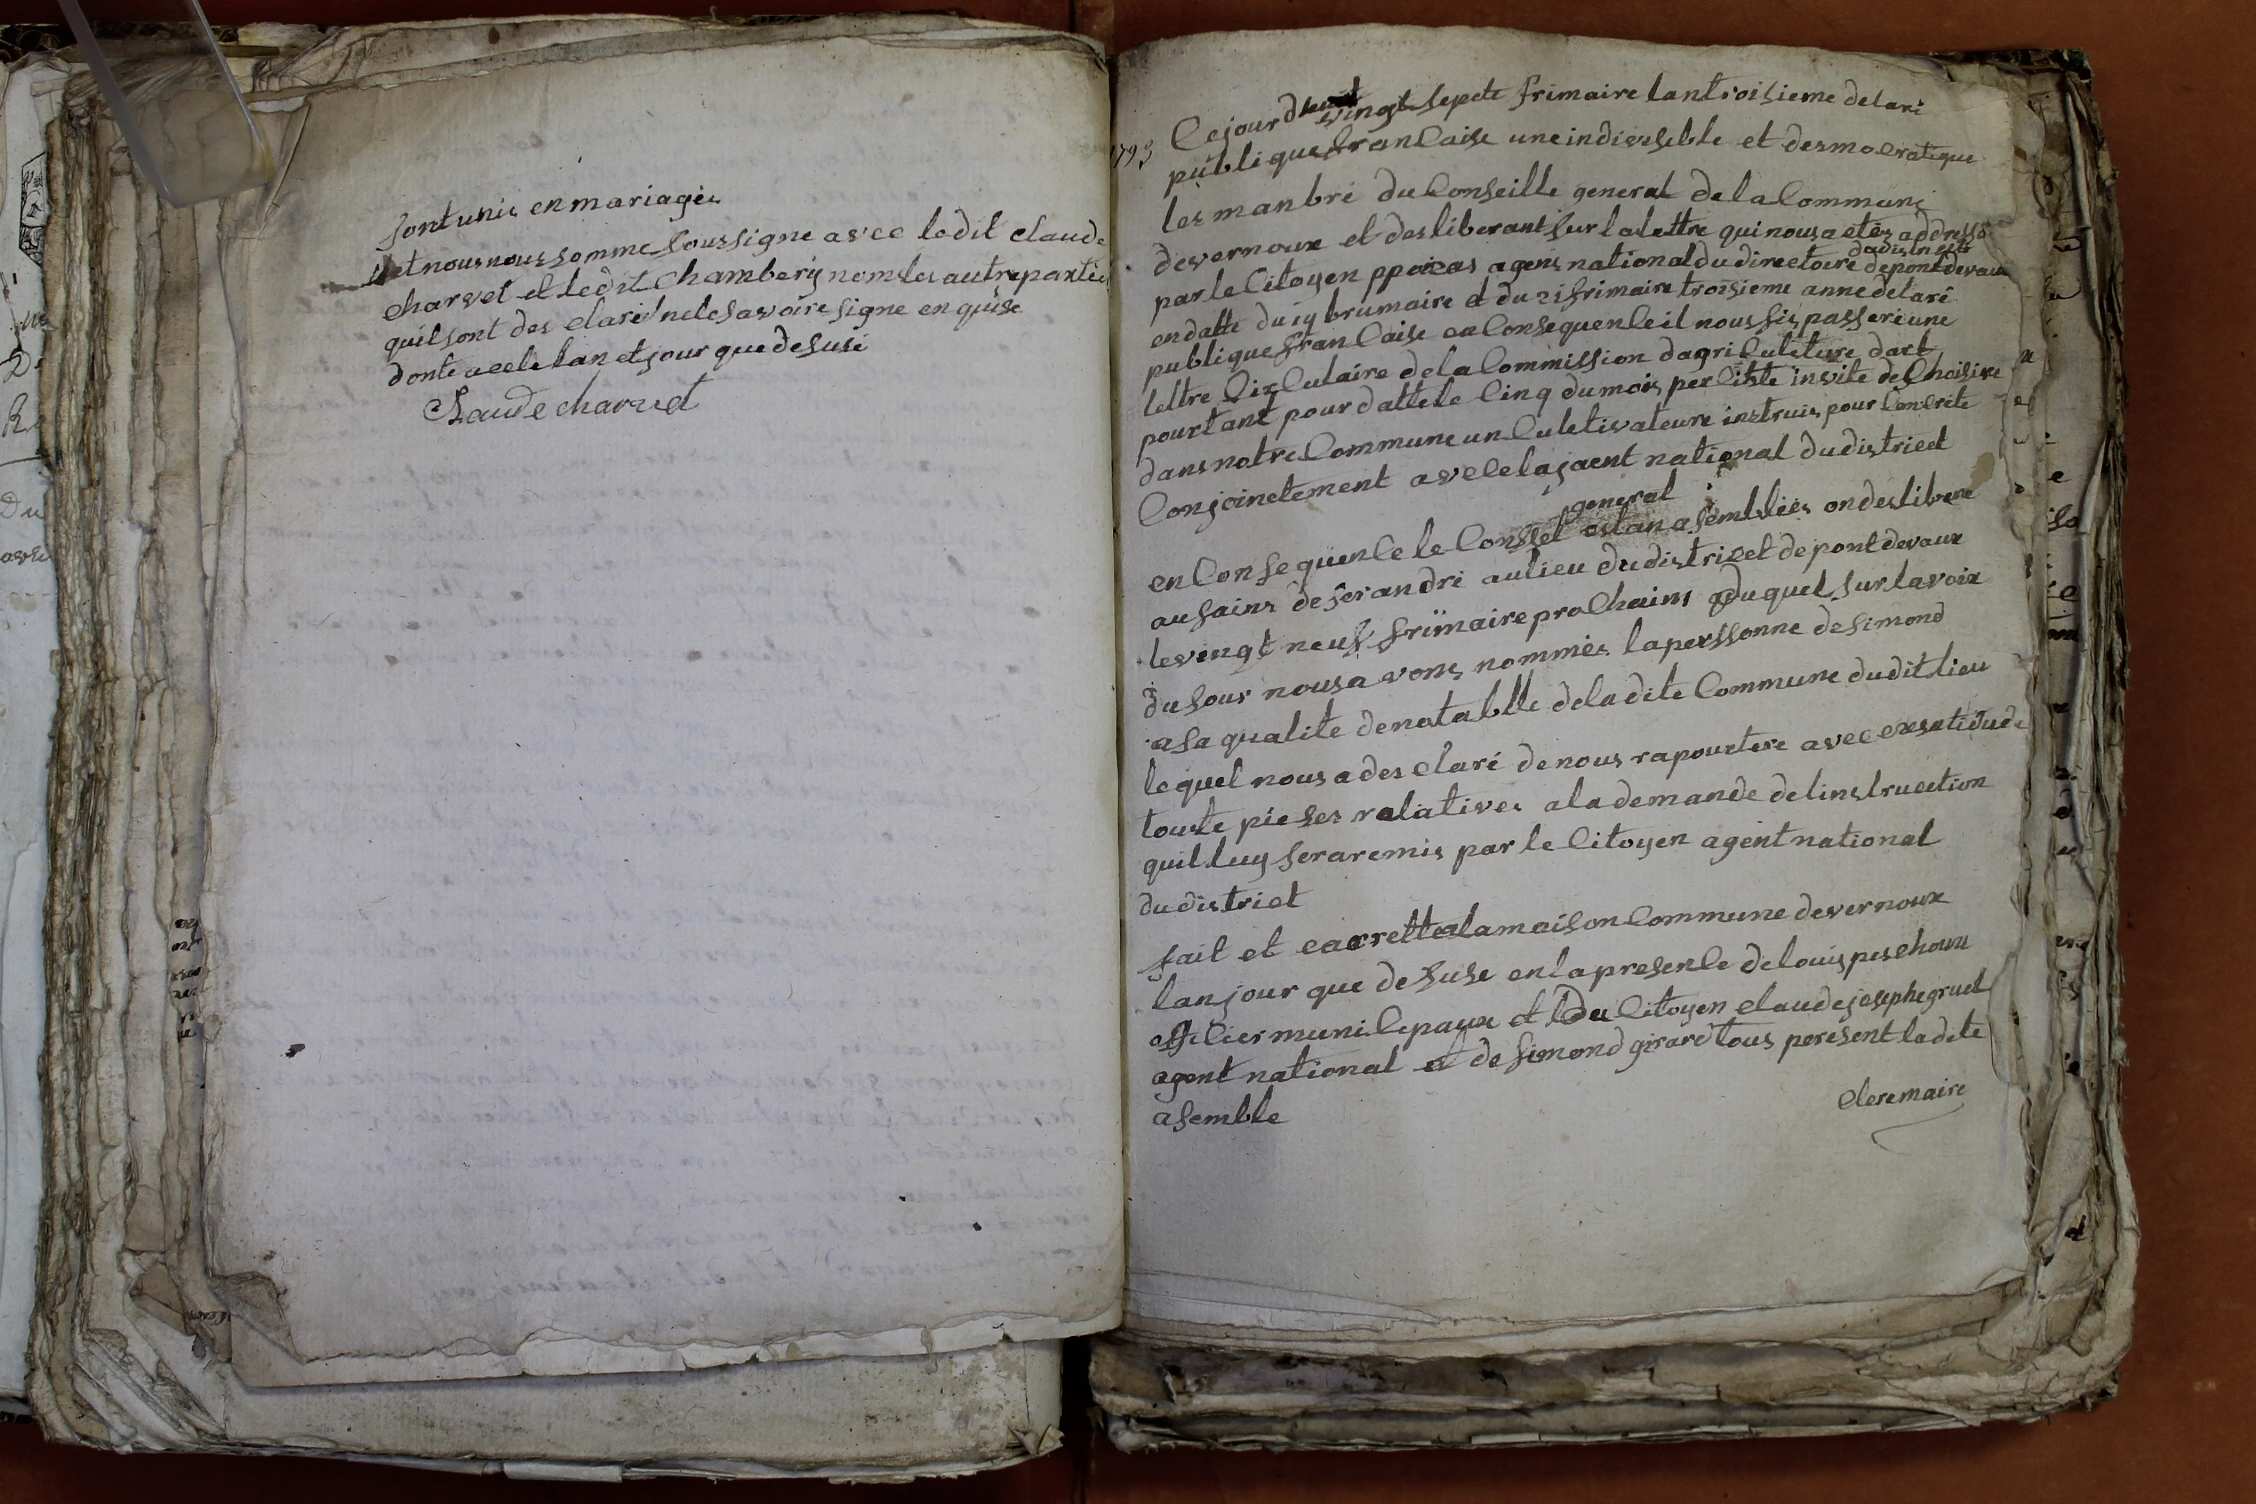 sont unis en mariages
et nous nous somme soussigne avec ledit claude
charvet et ledit Chambery nom les autre partie
quil sont des clare ne le savoire signe en quise
donte acete lan et jour que desusi
Claude charvet
1793
Cejourdhuit vingt sepete frimaire lan troisieme de lare
publique francaise une indivisible et desmocratique
les manbre du Conseille general de la Commune
devernoux et desliberant sur la lettre qui nous a etes addresse
par le Citoyen agens national du directoire du districte de pont devaux
en datte du 19 brumaire et du 21 frimaire troisieme anne de lare
publique francaise en Consequence il nous fis passere une
lettre Circulaire de la Commission dagriculeture dart
pourtant pour datte le Cinq du mois per invite de Choisire
dans notre Commune un Culetivateure instruis pour Concrete
Conjoinctement avec lagaent national du district
en Consequence le Conssel general estan asemblies on deslibere
au sains de serandre au lieu du district de pont devaux
le vingt neuf frimaire prochains duquel sur la voix
du sour nous avons nommés la perssonne de simond
a sa qualite de notablle de la dite Commune dudit lieu
lequel nous a des clare de nous rapourtere avec exsatitude
touste pieses relatives a la demande de linstruction
quil luy sera remis par le Citoyen agent national
du district
fait et earrette a la maison Commune devernoux
lan jour que desuse en la presence de louis peschoux
officier municipaux et du Citoyen claude josephe gruel
agent national et de simond girard tous peresent ladite
asemble
clere maire